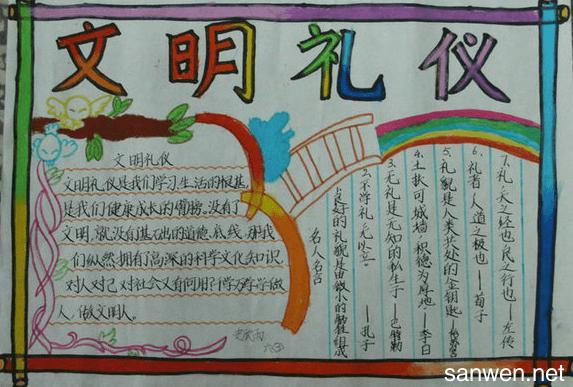 文明礼仪
文明礼仪
文明礼仪是我们学习、生活的根基,
是我们健康成长的臂膀。没有了
文明,就没有基础的道德底线,那我
们纵然拥有高深的科学文化知识,
对人对己对社会又有何用?
做人,做文明人。
名人名言
1、良好的礼貌是由微小的牺牲组成
2、不学礼,无以立。——孔子
3、无礼是无知的私生子——巴特勒
4、土扶可城墙,积德为厚地——李白
5、礼貌是人类共处的金钥匙——松苏内
6、礼者,人道之极也——荀子
7、礼,天之经也,民之行也——左传
六
sanwen.net